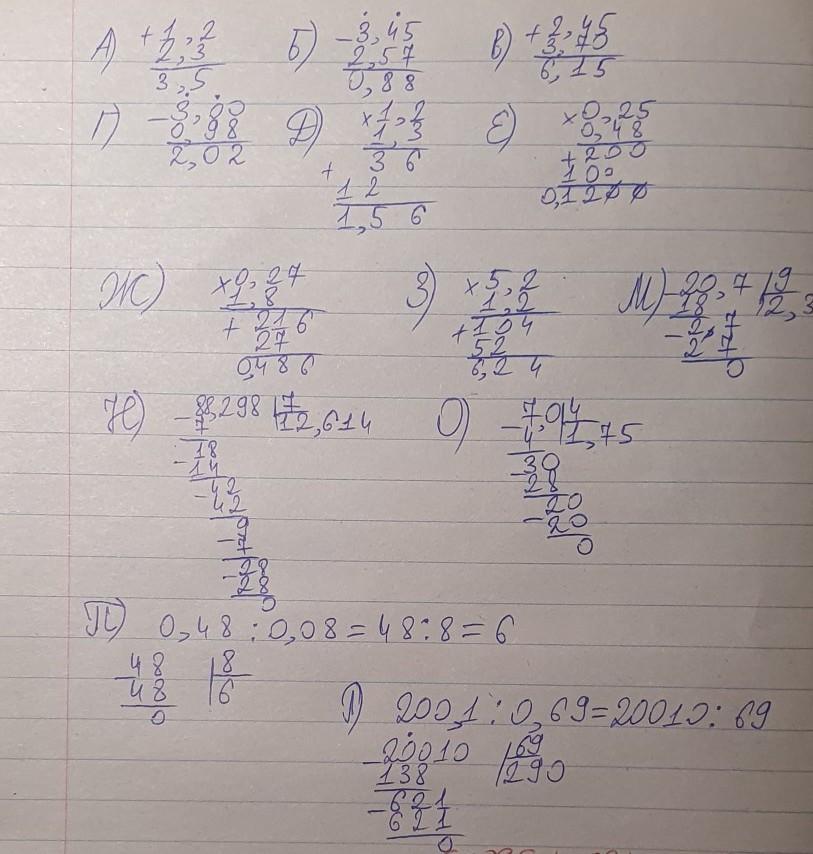 А) +1,2 Б) -3,45 В) +2,45
2,3 2,57 3,70
3,5 0,88 6,15
Г) -3,00 Д) ×1,2 Е) ×0,25
0,98 1,3 0,48
2,02 3 6 +200
+ 100
1 2 0,1200
1,5 6
Ж) ×0,27 З) ×5,2 М) -20,7 9
1,8 1,2 18 2,3
+216 +104 -2,7
27 52 2 7
0,486 6,24 0
Н) -88,298 7 О) -7,0 4
7 12,614 4 1,75
-18 -30
14 28
-42 -20
42 20
9 0
-7
-28
28
0
П) 0,48:0,08=48:8=6
-48 8
48 6
0
Л) 200,1:0,69=20010:69
-20010 69
138 290
-621
621
0